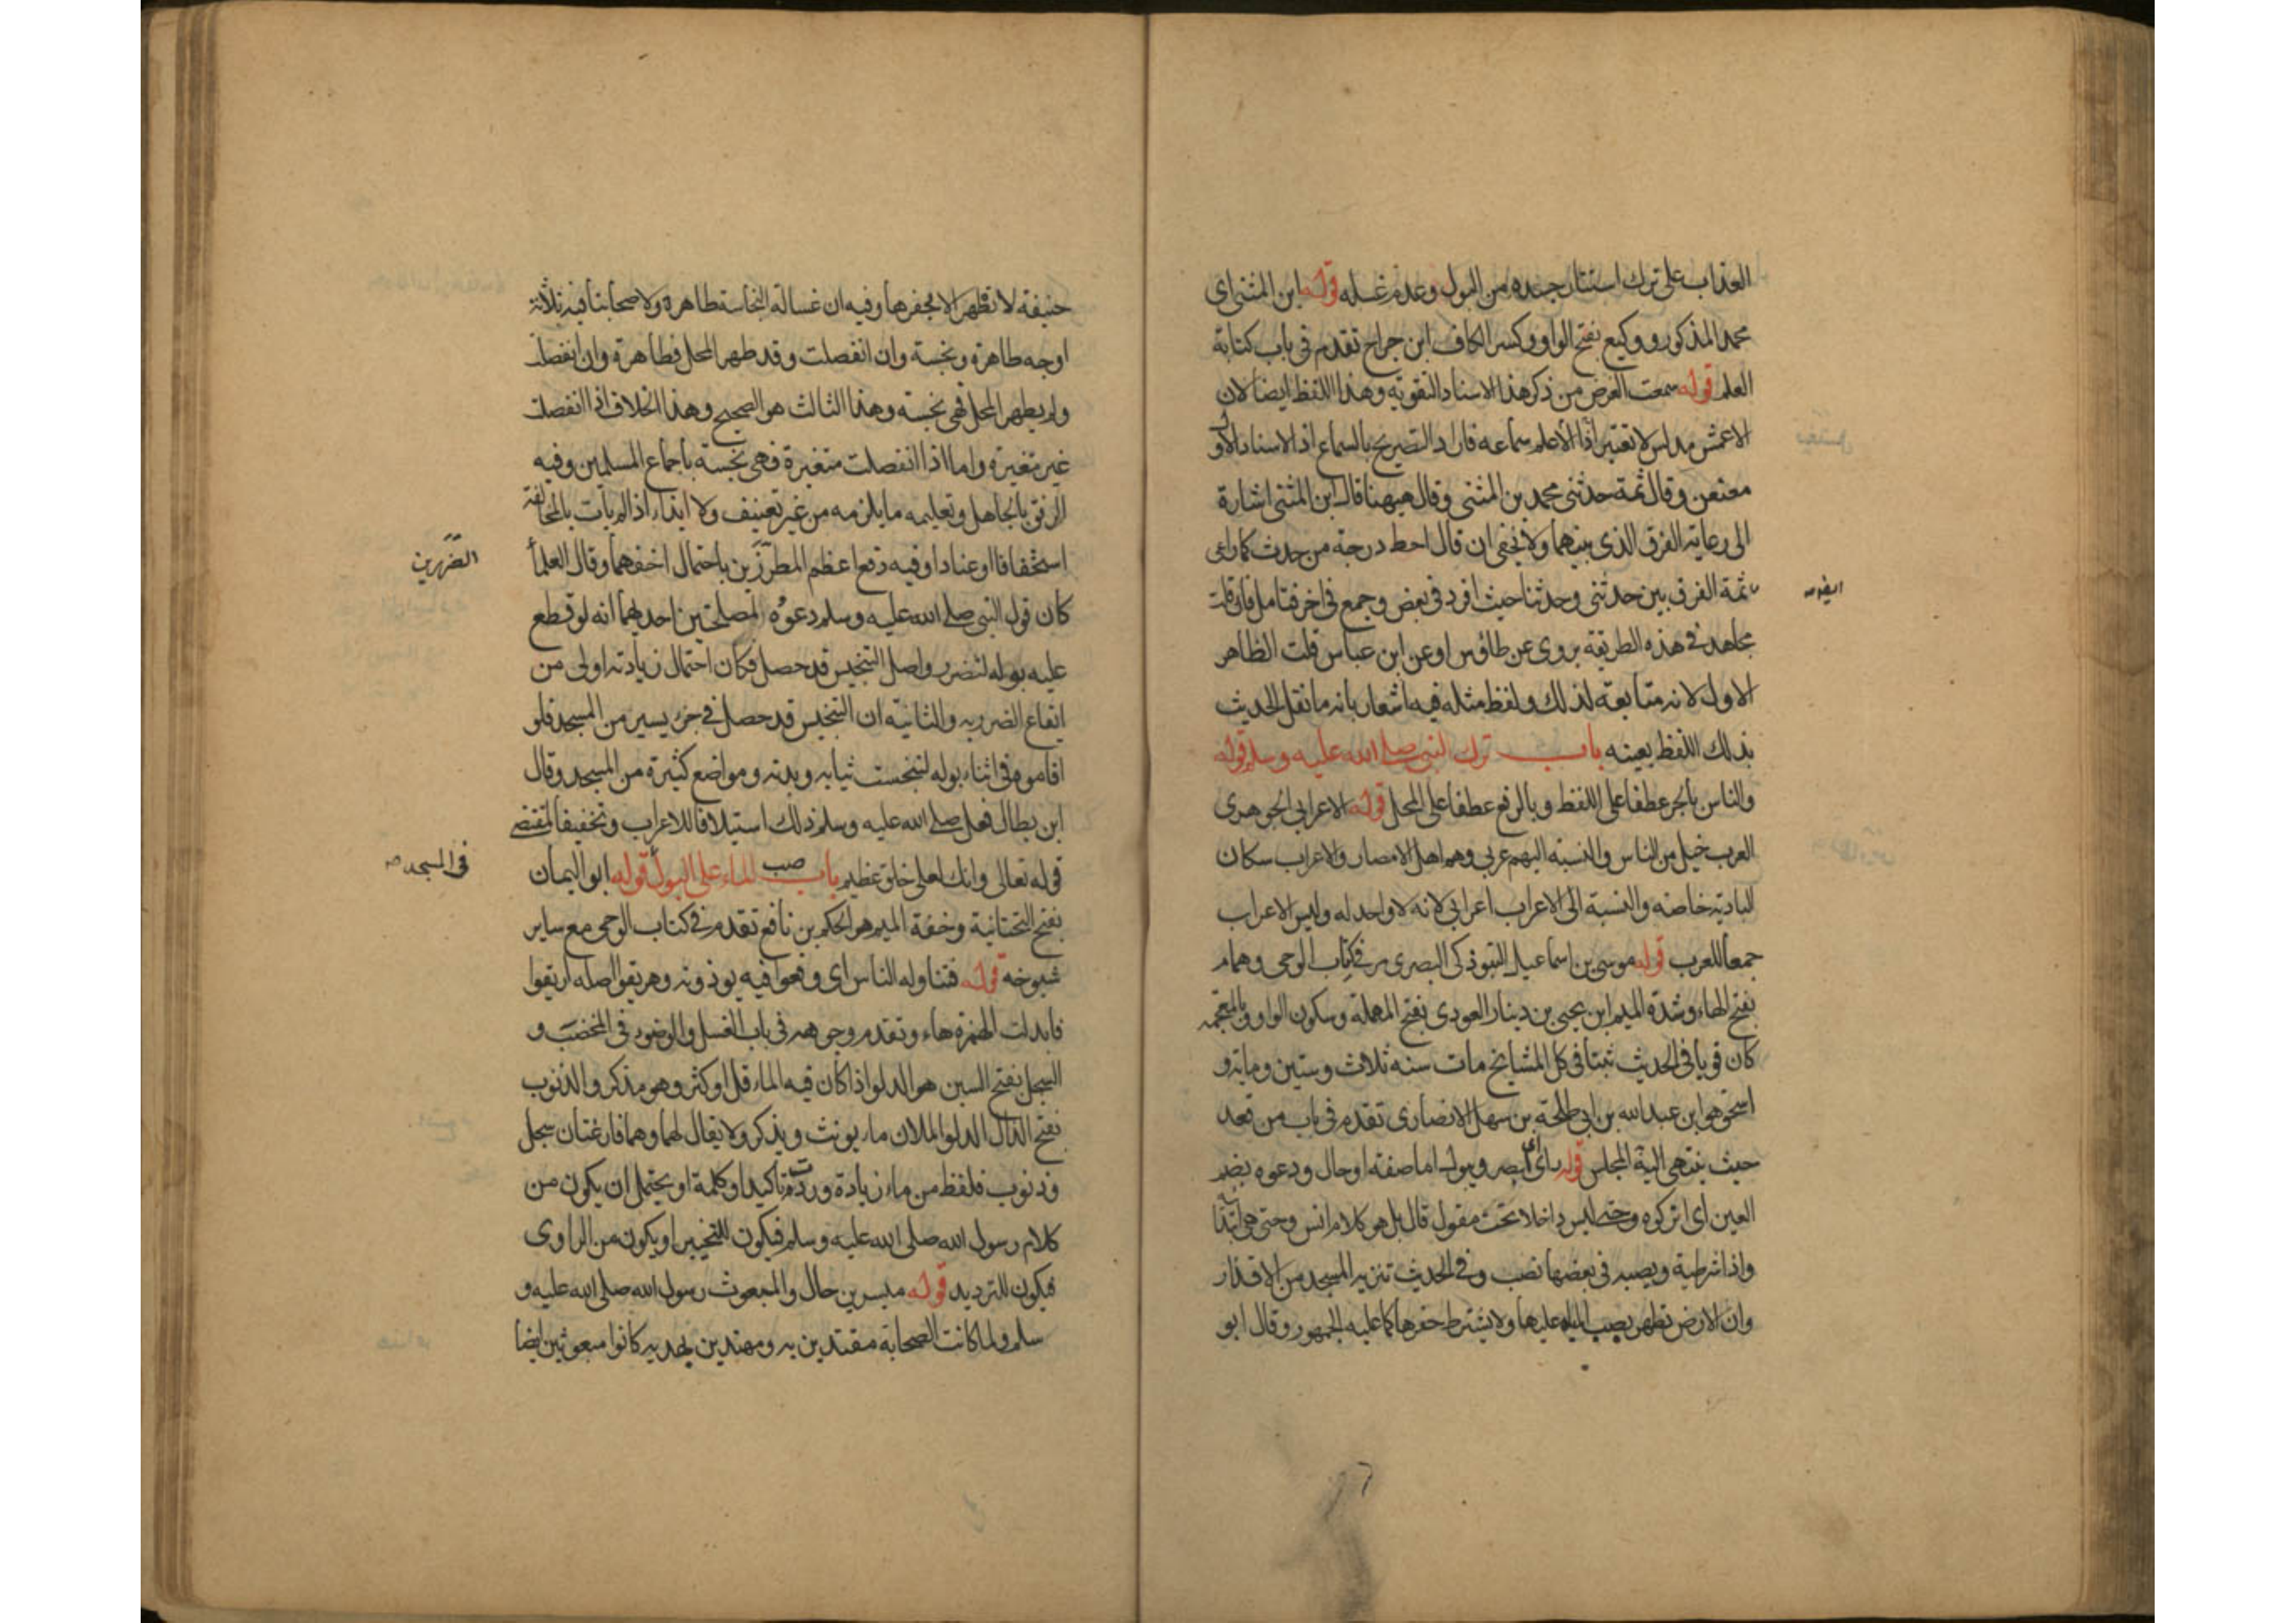 العذاب على ترك استنتار جسده من البول وعدم غسله قوله ابن المثنى اى
محمد المذكور ووكيع بفتح الواو وكسر الكاف ابن جراح تقدم فى باب كتابة
العلم قوله سمعت الغرض من ذكر هذا الاسناد التقوية وهذا اللفظ ايضا لان
الاعمش مدلس لا تعتبر الا علم سماعه فاراد التصريح بالسماع اذ الاسناد الاول
معنعن وقال ثمة حدثنى محمد بن المثنى وقال هيهنا قال ابن المثنى اشارة
الى رعاية الفرق الذى بينهما ولا يخفى ان قال احط درجة من حدث كما راعى
ثمة الفرق بين حدثنى وحدثنا حيث افرد فى بعض وجمع فى اخر فتامل فان قلت
مجاهد فى هذه الطريقة يروى عن طاؤس او عن ابن عباس قلت الظاهر
الاول لانه متابعة لذلك ولفظ مثله فيه اشعار بانه ما نقل الحديث
بذلك اللفظ بعينه باب ترك النبى صلى الله عليه وسلم قوله
والناس بالجر عطفا على اللفظ وبالرفع عطفا على المحل قوله الاعرابى الجوهرى
العرب خيل من الناس والنسبة اليهم عربى وهم اهل الامصار والاعراب سكان
البادية خاصة والنسبة الى الاعراب اعرابى لانه لا واحد له وليس الاعراب
جمعا للعرب قوله موسى بن اسماعيل التبوذكى البصرى مر فى كتاب الوحى وهمام
بفتح الهاء وشدة الميم ابن يحيى بن دينار العوذى بفتح المهملة وسكون الواو وبالمعجمة
كان قويا فى الحديث ثبتا فى كل المشايخ مات سنة ثلاث وستين ومايه و
اسحق هو ابن عبد الله بن ابى طلحة بن سهل الانصارى تقدم فى باب من قعد
حيث ينتهى اليه المجلس قوله راى اى ابصر ويبول اما صفة او حال ودعوه بضم
العين اى اتركوه وحتى ليس داخلا تحت مقول قال بل هو كلام انس وحتى هى ابتدا
واذا شرطية ويصبه فى بعضها نصب وفى الحديث تنزيه المسجد من الاقذار
وان الارض تطهر بصب المياه عليها ولا يشترط حفرها كما عليه الجمهور وقال ابو
حنيفة لا تطهر الا بحفرها وفيه ان غسالة النجاسة طاهرة ولاصحابنا فيه ثلثة
اوجه طاهرة ونجسة وان انفصلت وقد طهر المحل فطاهرة وان انفصلت
ولم يطهر المحل فهى نجسة وهذا الثالث هو الصحيح وهذا الخلاف اذا انفصلت
غير متغيرة واما اذا انفصلت متغيرة فهى نجسة باجماع المسلمين وفيه
الرفق بالجاهل وتعليمه ما يلزمه من غير تعنيف ولا ايذاء اذ لم يات بالمخالفة
استخفافا او عنادا وفيه دفع اعظم المطرزين باحتمال اخفهما وقال العلما
الضررين
كان قول النبى صلى الله عليه وسلم دعوه لمصلحتين احديهما انه لو قطع
عليه بوله لتضرر واصل التنجيس قد حصل فكان احتمال زيادته اولى من
ايقاع الضرر به والثانية ان التنجيس قد حصل فى جزء يسير من المسجد فلو
اقاموه فى اثناء بوله لتنجست ثيابه وبدنه ومواضع كثيرة من المسجد وقال
ابن بطال فعل صلى الله عليه وسلم ذلك استيلافا للاعراب وتخفيفا لمقتضى
قوله تعالى وانك لعلى خلق عظيم باب صب الماء على البول قوله ابو اليمان
فى المسجد صح
بفتح التحتانية وخفة الميم هو الحكم بن نافع تقدم فى كتاب الوحى مع ساير
شيوخه قوله فتناوله الناس اى وقعوا فيه يوذونه وهريقوا اصله اريقوا
فابدلت الهمزة هاء وتقدم وجوهه فى باب الغسل والوضوء فى المخضب و
السجل بفتح السين هو الدلو اذا كان فيه الماء قل او كثر وهو مذكر والذنوب
بفتح الذال الدلو الملان ماء يونث ويذكر ولا يقال لهما وهما فارغتان سجل
وذنوب فلفظ من ماء زيادة وردت تاكيدا وكلمة او يحتمل ان يكون من
كلام رسول الله صلى الله عليه وسلم فيكون للتخيير او يكون من الراوى
فيكون للترديد قوله ميسرين حال والمبعوث رسول الله صلى الله عليه و
سلم ولما كانت الصحابة مقتدين به ومهتدين بهديه كانوا مبعوثين ايضا